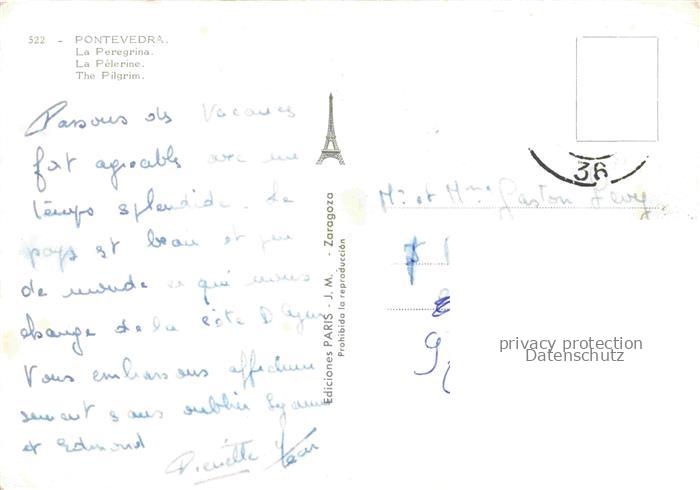 522 - PONTEVEDRA.
La Peregrina.
La Pélerine.
The Pilgrim.
Passons des vacances
fort agréables avec un
temps splendide. Le
pays est beau et peu
de monde ce qui nous
change de la côte D'Azur
Vous embrassons affectueu
sement sans oublier
et Edmond
Pierrette Jean
Ediciones PARIS - J. M. - Zaragoza
Prohibida la reproducción
36
Mr et Mme Gaston Levy
privacy protection
Datenschutz